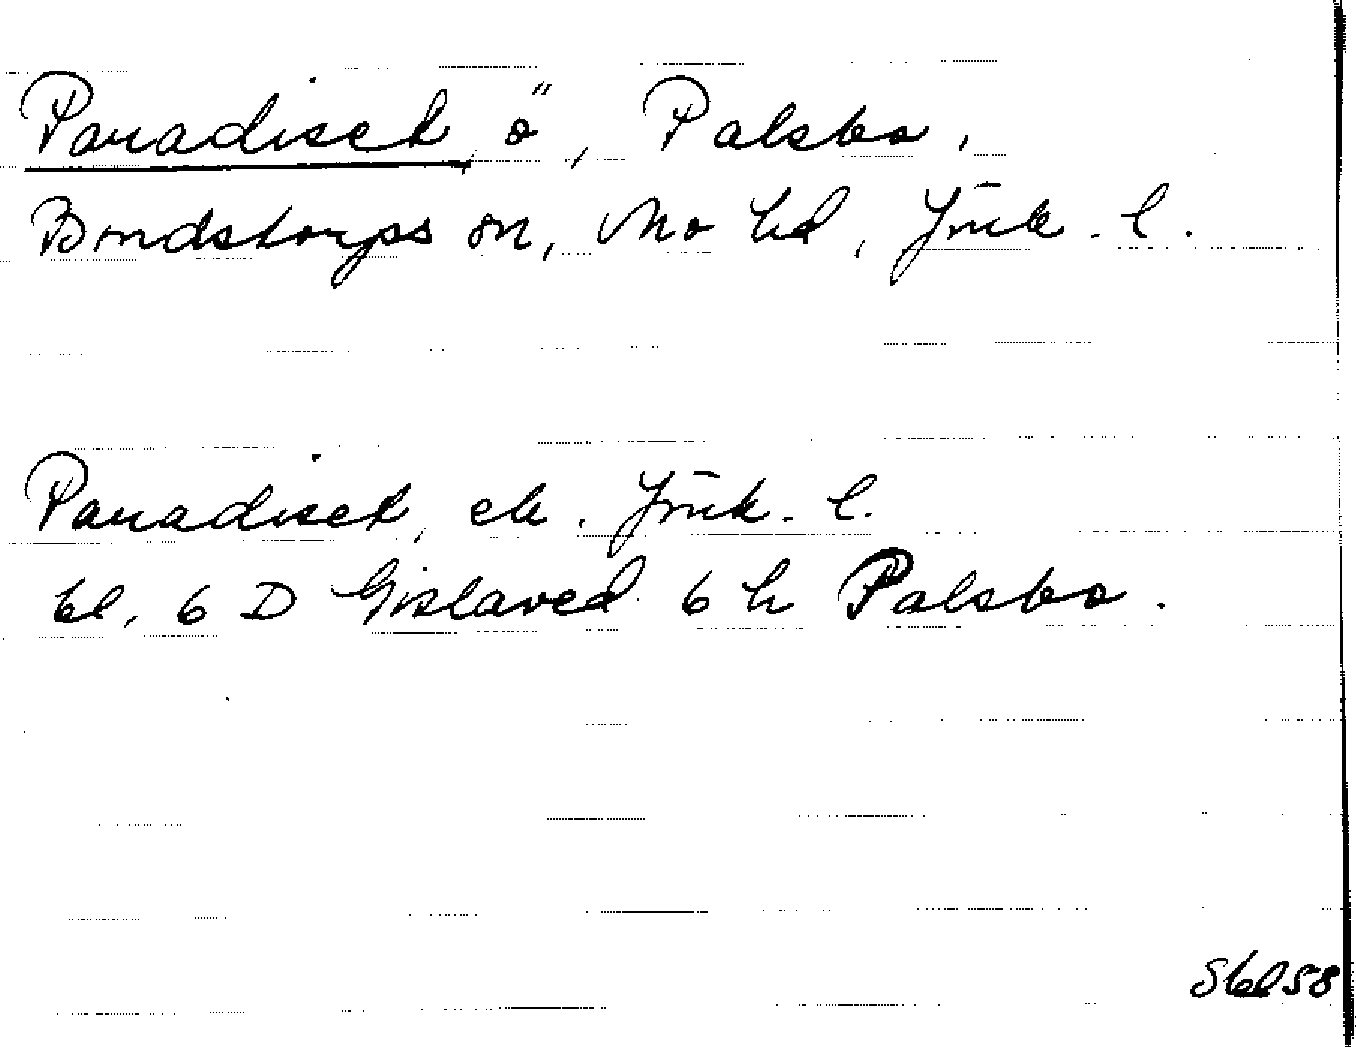 Paradiset, ö, Palsbo,
Bondstorps sn, Mo hd, Jönk. l.
Paradiset, ek. Jönk. l.
bl. 6 D Gislaved 6 h Palsbo.